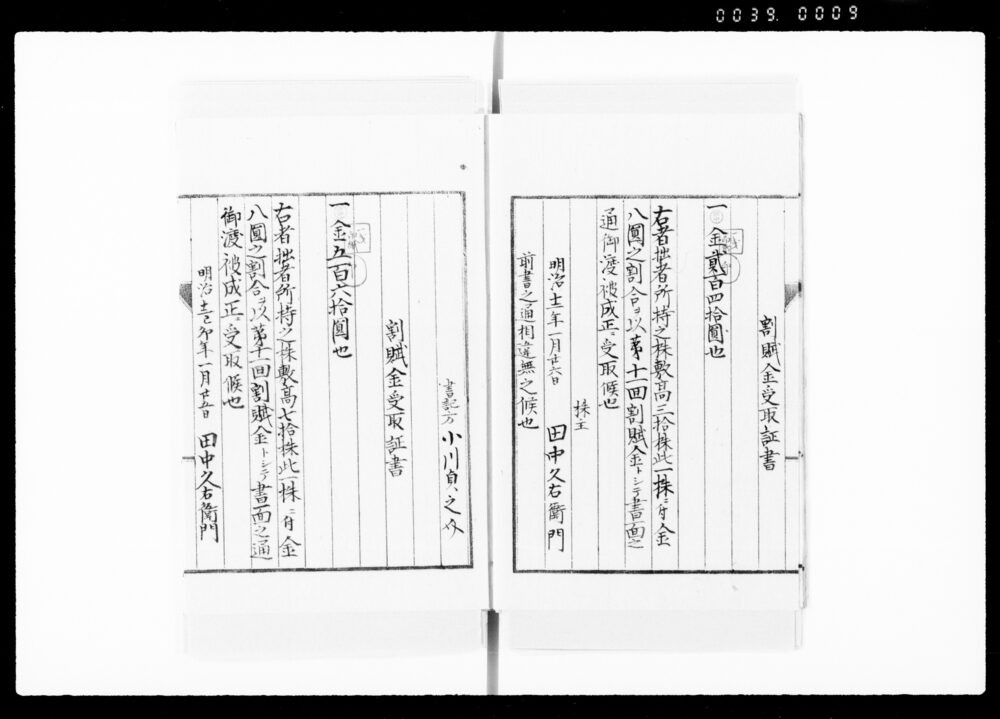 0039. 0009
割賦金受取証書
一金貳百四拾圓也
右者拙者所持之株敷高三拾株此一株ニ付金
八圓之割合ヲ以第十一回割賦金トシテ書面之
通御渡被成正ニ受取候也
株主
明治十二年一月廿六日 田中久右衛門
前書之通相違無之候也
書記方 小川貞之
割賦金受取証書
一金五百六拾圓也
右者拙者所持之株敷高七拾株此一株ニ付金
八圓之割合ヲ以第十一回割賦金トシテ書面之通
御渡被成正ニ受取候也
明治十二己卯年一月廿五日 田中久右衛門